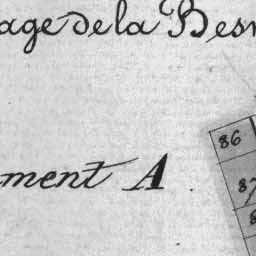 age de la Bes
ment A
86
87
8